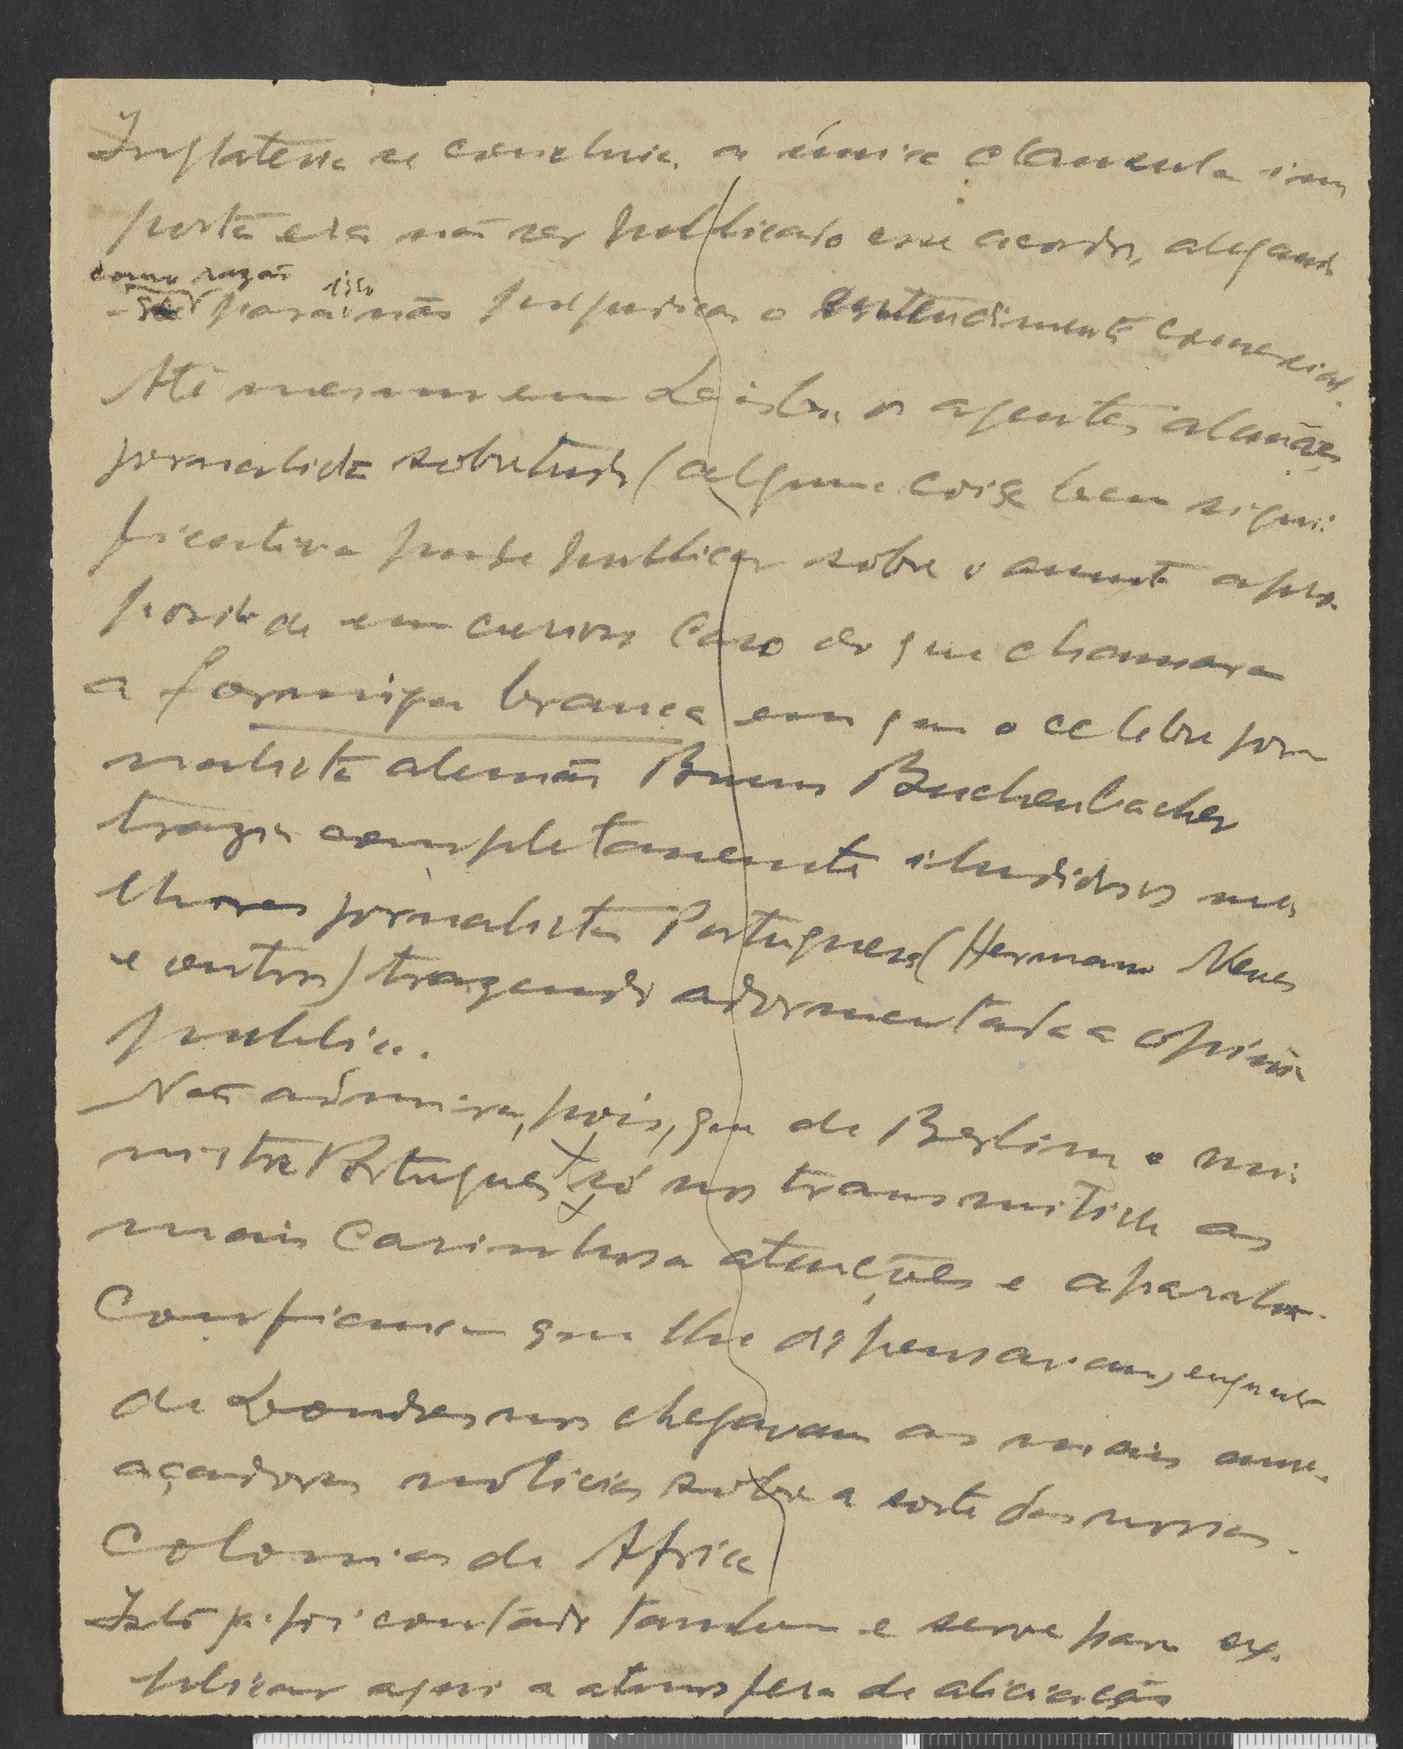 Inglaterra se concluia. a única clausula im
posta era não ser publicado esse acordo, alegand
como razão isso
-se para não prejudicar o entendimento comercial.
Até mesmo em Lisboa os agentes alemães
jornalista sobretudo (alguma coisa bem signi
ficativa pude publicar sobre o assunto a pro
posito de um curioso caso do que chamara
a formiga branca em que o celebre jor
nalista alemão Bruno Buchenbacher
trazia completamente iludidos os me
lhores jornalistas Portugueses (Hermano Neves
e outros) trazendo adormentada a opinião
publica.
Não admira, pois, que de Berlim o mi
nistro Português só nos transmitisse as
mais carinhosas atenções e aparatosa
confiança que lhe dispensavam, enquanto
de Londres nos chegavam as mais ame
açadoras noticias sobre a sorte das nossas
Colonias de Africa
Isto já foi contado tambem e serve para ex
plicar aqui a atmosfera de aliciação